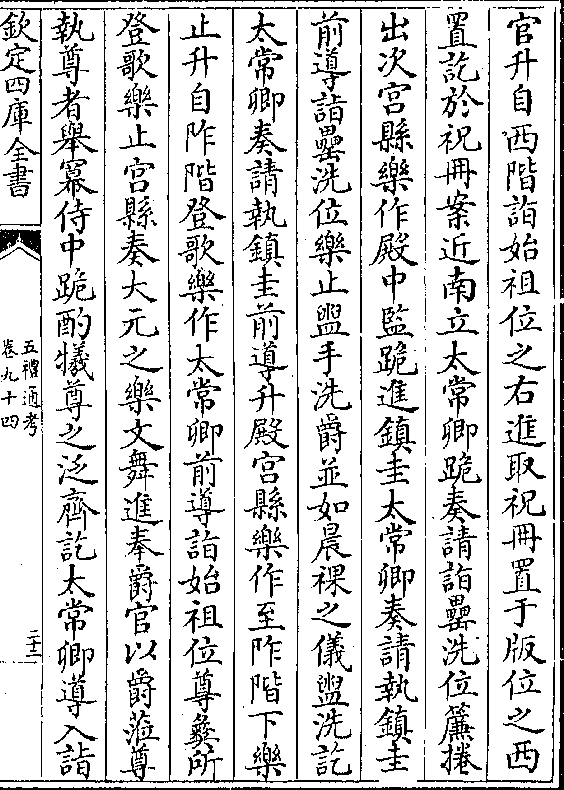 官升自西階詣始祖位之右進取祝冊置于版位之西
置訖於祝冊案近南立太常卿跪奏請詣罍洗位簾捲
出次宫縣樂作殿中監跪進鎮圭太常卿奏請執鎮圭
前導詣罍洗位樂止盥手洗爵並如晨祼之儀盥洗訖
太常卿奏請執鎮圭前導升殿宫縣樂作至阼階下樂
止升自阼階登歌樂作太常卿前導詣始祖位尊彝所
登歌樂止宫縣奏大元之樂文舞進奉爵官以爵蒞尊
執尊者舉冪侍中跪酌犧尊之泛齊訖太常卿導入詣
欽定四庫全書
五禮通考
卷九十四
二十二